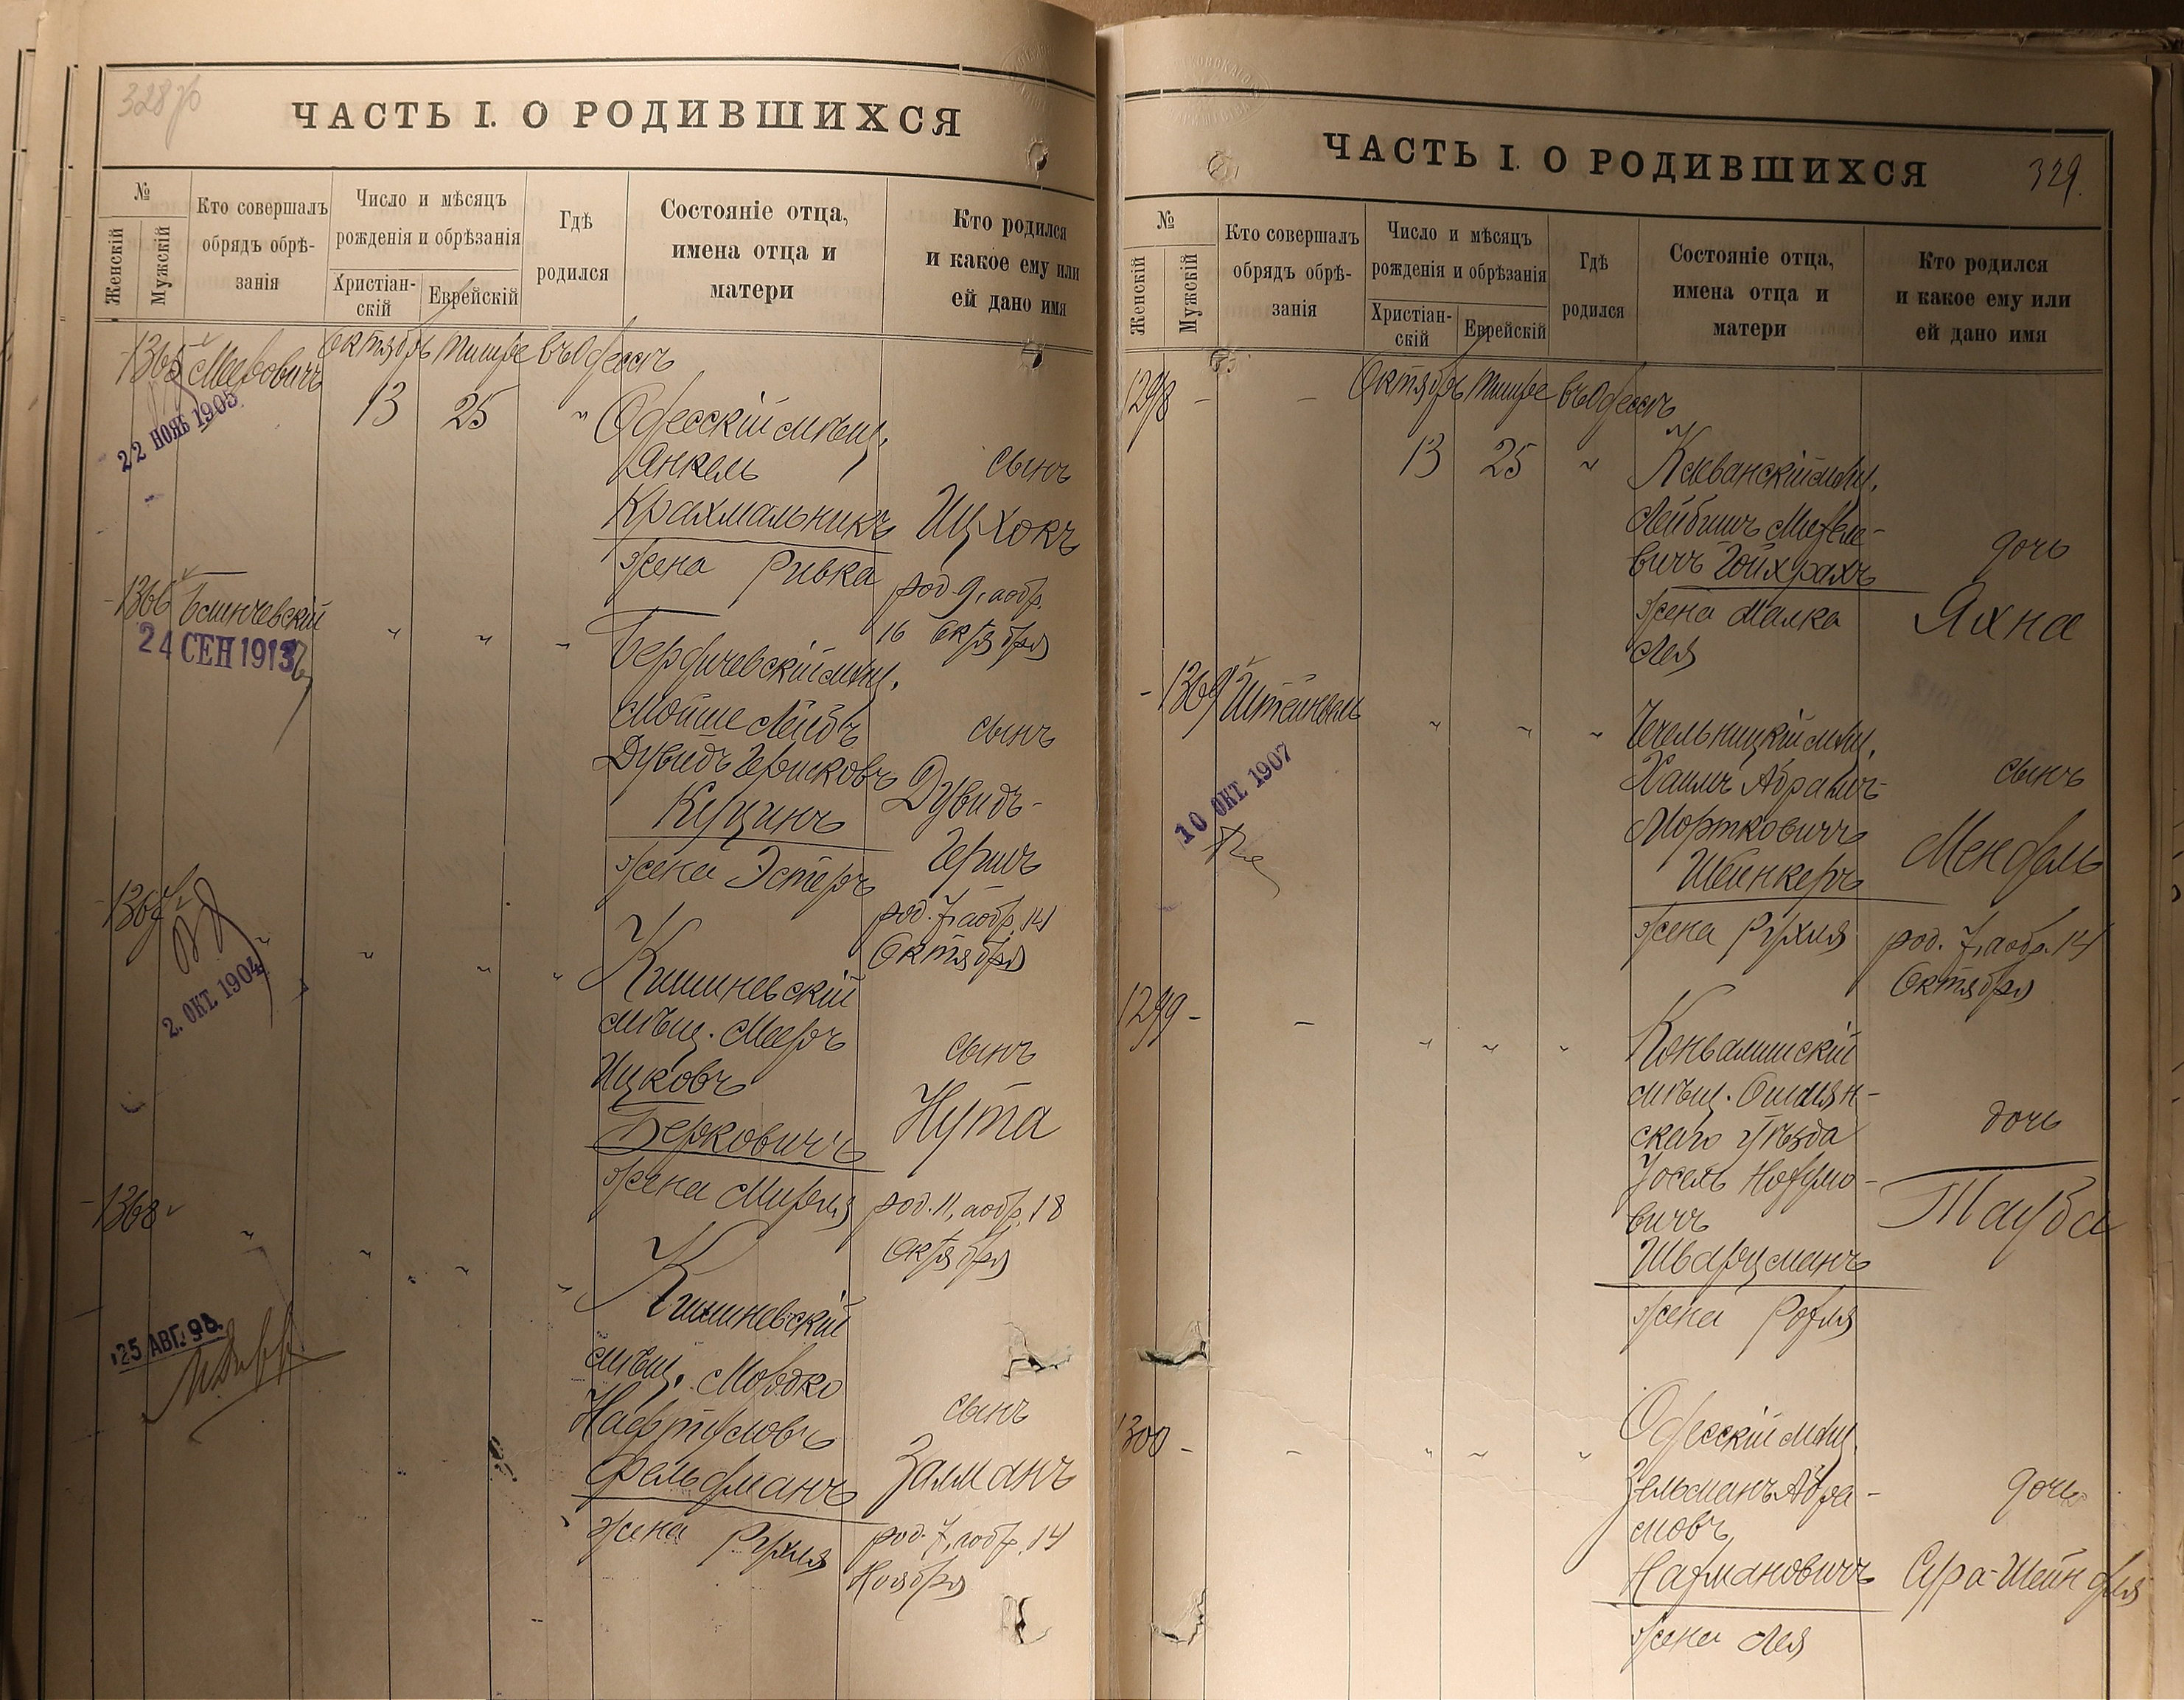 328 об
ЧАСТЬ I. О РОДИВШИХСЯ
№
Женскій
Мужскій
Кто совершалъ
обрядъ обрѣ-
занія
Число и мѣсяцъ
рожденія и обрѣзанія
Христіан-
скій
Еврейскій
Гдѣ
родился
Состояніе отца,
имена отца и
матери
Кто родился
и какое ему или
ей дано имя
1365 Мееровичъ Октябрь Тишре въ Одессѣ
22 НОЯБ 1905
13 25 " Одесскій мѣщ.
Янкель сынъ
Крахмальникъ Ицхокъ
жена Ривка род. 9, а обр.
16 Октября
1366 Блинчевскій
24 СЕН 1913
" " " Бердичевскій мѣщ.
Мойше Лейбъ сынъ
Дувидъ Гершковъ Дувидъ-
Куцинъ Гершъ
жена Эстеръ род. 7, а обр. 14
Октября
1367 "
2. ОКТ. 1904
" " " Кишиневскій
мѣщ. Мееръ сынъ
Ицковъ Нута
Берковичъ
жена Мирля род. 11, а обр. 18
Октября
1368 "
25 АВГ. 98.
" " " Кишиневскій
мѣщ. Мордко сынъ
Нафтуловъ
Фельдманъ Залманъ
жена Рухля род. 7, а обр. 14
Ноября
ЧАСТЬ I. О РОДИВШИХСЯ
329.
№
Женскій
Мужскій
Кто совершалъ
обрядъ обрѣ-
занія
Число и мѣсяцъ
рожденія и обрѣзанія
Христіан-
скій
Еврейскій
Гдѣ
родился
Состояніе отца,
имена отца и
матери
Кто родился
и какое ему или
ей дано имя
1298 - - Октябрь Тишре въ Одессѣ
13 25 " Клеванскій мѣщ.
Лейбишъ
вичъ Гойхрахъ дочь
жена Малка Яхна
Лея
- 1369 Штейнваль
10 ОКТ. 1907
" " " Чечельницкій мѣщ.
Хаимъ Абрамъ- сынъ
Мортковичъ Мендель
Шейнкеръ
жена Рухля род. 7, а обр. 14
Октября
1299 - - " " " Конвалишскій
мѣщ. Ошмян-
скаго уѣзда дочь
Іосель
вичъ Тауба
Шварцманъ
жена
1300 - - " " " Одесскій мѣщ.
Зельманъ Абра- дочь
мовъ
Нахмановичъ Сура-Шейндля
жена Лея